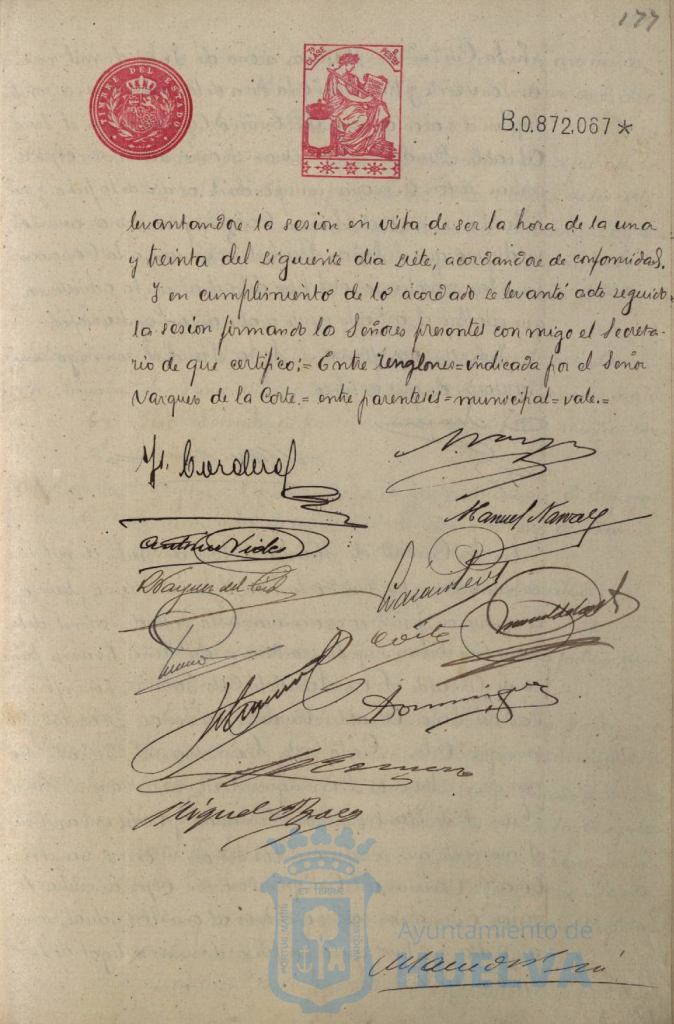 177
TIMBRE DEL ESTADO
CLASE
B.0.872,067*
levantandose la sesion en vista de ser la hora de la una
y treinta del siguiente dia siete, acordandose de conformidad.
Y en cumplimiento de lo acordado se levantó acto seguido
la sesion firmando lo Señores presentes con migo el Secreta-
rio de que certifico:= Entre renglones=indicada por el Señor
Vazques de la Corte.= entre parentesis=municipal=vale.=
Cordero
Manuel Navarro
Antonio Vides
Corte
Dominguez
Romero
Miguel Baez
PORTUS MARIS
ET TERRAE
CUSTODIA
Ayuntamiento de
HUELVA